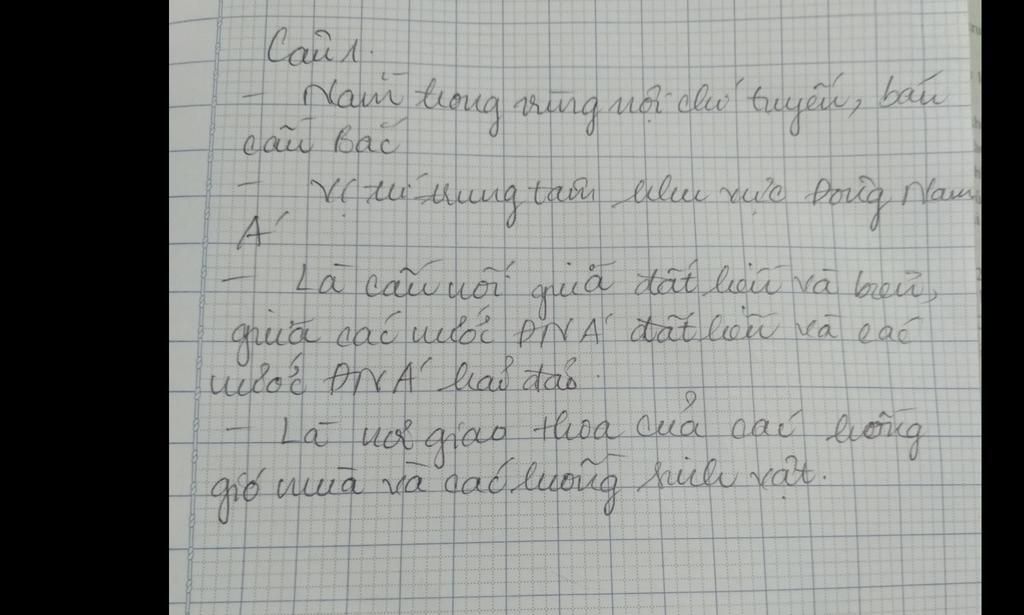 Câu 1.
- Nằm trong vùng nội chí tuyến, bán
cầu Bắc
- Vị trí trung tâm khu vực Đông Nam
Á
- Là cầu nối giữa đất liền và biển,
giữa các nước ĐNA đất liền và các
nước ĐNA hải đảo.
- Là nơi giao thoa của các luồng
gió mùa và các luồng sinh vật.